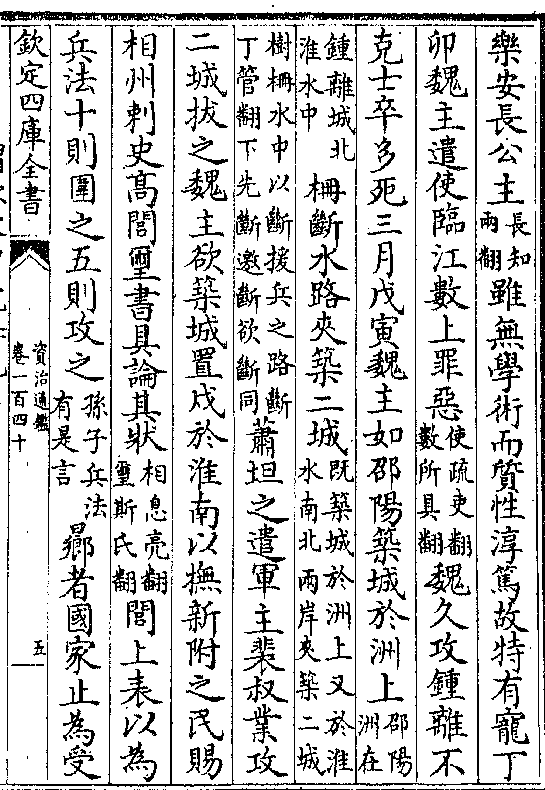 樂安長公主長知兩翻雖無學術而質性淳篤故特有寵丁
卯魏主遣使臨江數上罪惡使疏吏翻數所具翻魏久攻鍾離不
克士卒多死三月戊寅魏主如邵陽築城於洲上邵陽洲在
鍾離城北淮水中柵斷水路夾築二城既築城於洲上又於淮水南北兩岸夾築二城
樹柵水中以斷援兵之路斷丁管翻下先斷邀斷欲斷同蕭坦之遣軍主裴叔業攻
二城拔之魏主欲築城置戍於淮南以撫新附之民賜
相州刺史髙閭璽書具論其狀相息亮翻璽斯氏翻閭上表以為
兵法十則圍之五則攻之孫子兵法有是言曏者國家止為受
欽定四庫全書
資治通鑑
卷一百四十
五